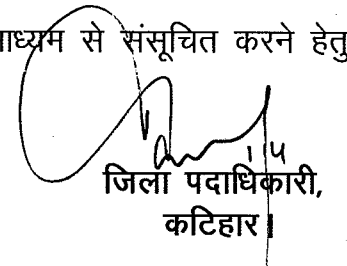 ाध्यम से संसूचित करने हेतु
जिला पदाधिकारी,
कटिहार।